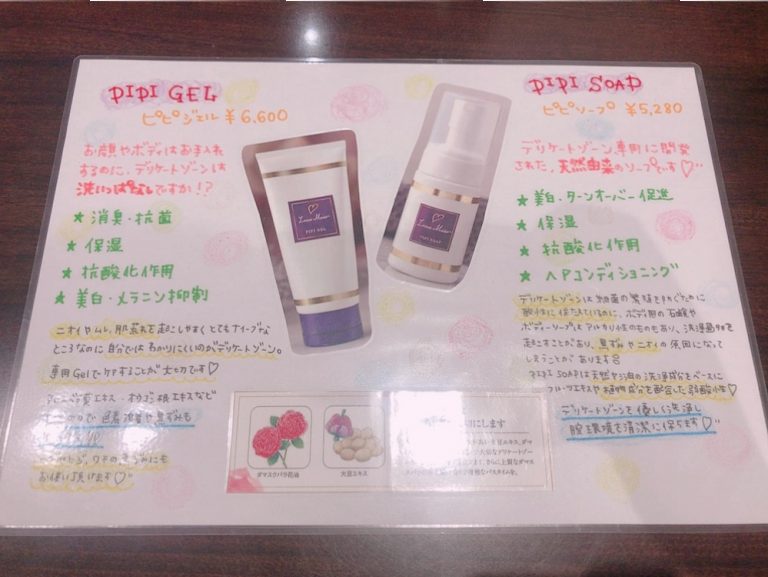 PIPI GEL
ピピジェル ¥6,600
お顔やボディはお手入れ
するのに、デリケートゾーンは
洗いっぱなしですか!?
★ 消臭・抗菌
★ 保湿
★ 抗酸化作用
★ 美白・メラニン抑制
ニオイやムレ、肌荒れを起こしやすくとてもナイーブな
ところなのに自分ではわかりにくいのがデリケートゾーン。
専用Gelでケアすることが大切です♡
エキス・オウゴン根エキスなど
色素沈着や黒ずみも
ワキの黒ずみにも
お使い頂けます♡
PIPI GEL
PIPI SOAP
PIPI SOAP
ピピソープ ¥5,280
デリケートゾーン専用に開発
された、天然由来のソープです♡
★ 美白・ターンオーバー促進
★ 保湿
★ 抗酸化作用
★ PHコンディショニング
デリケートゾーンは細菌の繁殖を防ぐために
酸性に保たれているのに、ボディ用の石鹸や
ボディーソープはアルカリ性のものもあり、洗浄過剰を
起こすことがあり、黒ずみやニオイの原因になって
しまうことがあります
PIPI SOAPは天然ヤシ油の洗浄成分をベースに
フルーツエキスや植物成分を配合した弱酸性♡
デリケートゾーンを優しく洗浄し
膣環境を清潔に保ちます♡
ダマスクバラ花油
大豆エキス
にします